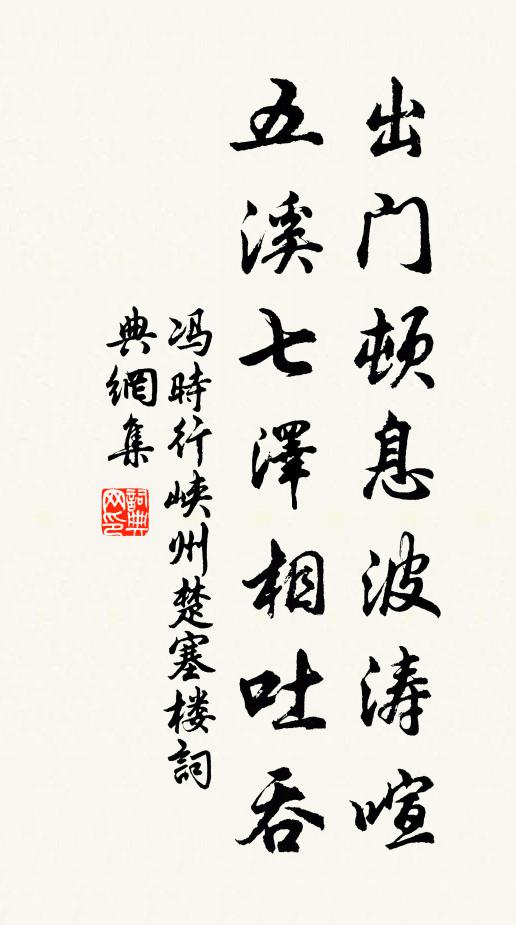 出门顿息波涛喧
五溪七泽相吐吞
冯時行峡州楚塞楼詞
典網集
詞典网印